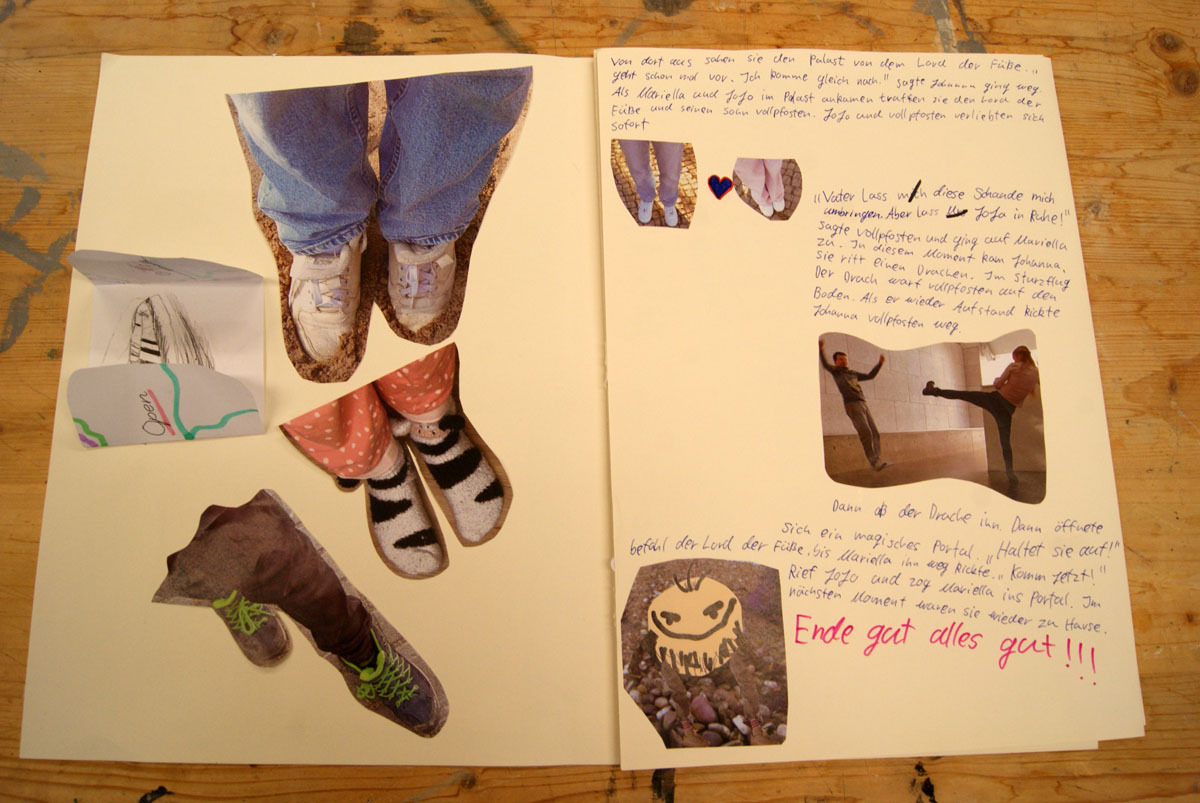 Open
Von dort aus sahen sie den Palast von dem Lord der Füße. „
geht schon mal vor. Ich komme gleich nach." sagte Johanna ging weg.
Als Mariella und JoJo im Palast ankamen traffen sie den Lord der
Füße und seinen sohn vollpfosten. JoJo und vollpfosten verliebten sich
sofort
„Vater Lass mich diese Schande mich
umbringen. Aber Lass JoJo in Ruhe!"
sagte vollpfosten und ging auf Mariella
zu. In diesem Moment kam Johanna,
sie ritt einen Drachen. Im Sturzflug
Der Drach warf vollpfosten auf den
Boden. Als er wieder Aufstand kickte
Johanna vollpfosten weg.
Dann aß der Drache ihn. Dann öffnete
sich ein magisches Portal. „Haltet sie auf!"
befahl der Lord der Füße, bis Mariella ihn weg kickte. „Komm Jetzt!"
Rief JoJo und zog Mariella ins Portal. Im
nächsten Moment waren sie wieder zu Hause.
Ende gut alles gut!!!